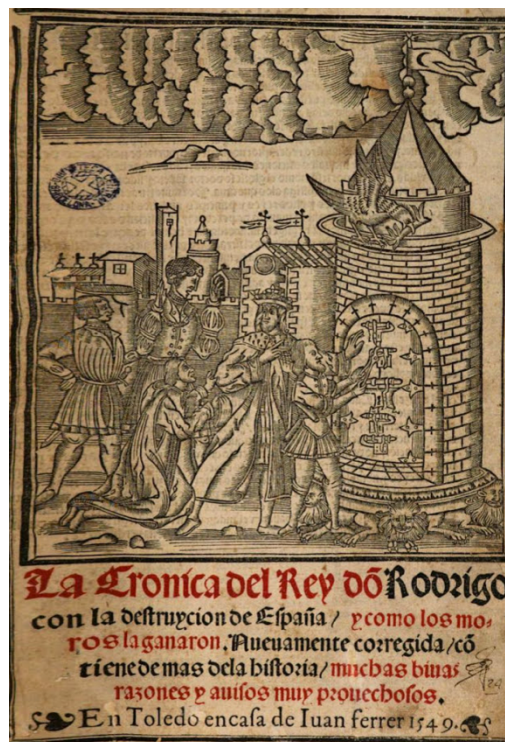 La Cronica del Rey dõ Rodrigo
con la destruycion de España / y como los mo-
ros la ganaron. Nueuamente corregida / cõ
tiene de mas dela historia / muchas biuas
razones y auisos muy prouechosos.
En Toledo en casa de Iuan ferrer 1549.